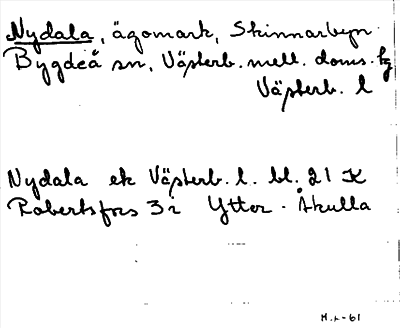 Nydala, ägomark, Skinnarbyn
Bygdeå sn, Västerb. mell. doms. tg
Västerb. l
Nydala ek Västerb. l. bl. 21 K
Robertsfors 3i Ytter-Åkulla